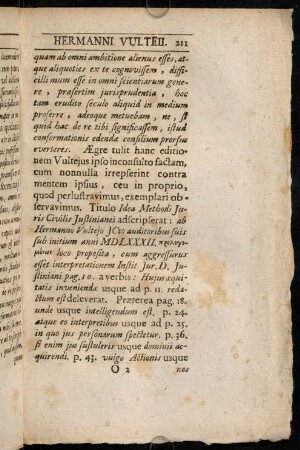 HERMANNI VULTEII. 211
quam ab omni ambitione alienus esses, at-
que aliquoties ex te cognovissem, diffi-
cilli mum esse in omni scientiarum gene-
re, præsertim jurisprudentia, hoc
tam erudito seculo aliquid in medium
proferre, adeoque metuebam, ne, si
quid hac de re tibi significassem, istud
conformationis edenda consilium prorsus
everteres. Ægre tulit hanc editio-
nem Vultejus ipso inconsulto factam,
cum nonnulla irrepserint contra
mentem ipsius, ceu in proprio,
quod perlustravimus, exemplari ob-
servavimus. Titulo Idea Methodi Ju-
ris Civilis Justinianei adscripserat: ab
Hermanno Vultejo JCto auditoribus suis
sub initium anni MDLXXXII. προλεγο-
μένων loco proposita, cum aggressurus
esset interpretationem Instit Jur. D. Ju-
stiniani pag. 10. a verbis: Hujus æqui-
tatis inveniendæ usque ad p. 11. reda-
ctum est deleverat. Præterea pag. 18.
unde usque intelligendum est. p. 24.
atque eo interpretibus usque ad p. 25.
in quo jus personarum spectetur. p. 36.
si enim jus sustuleris usque dominii ac-
quirendi. p. 43. vulgo Actionis usque
O 2 nos